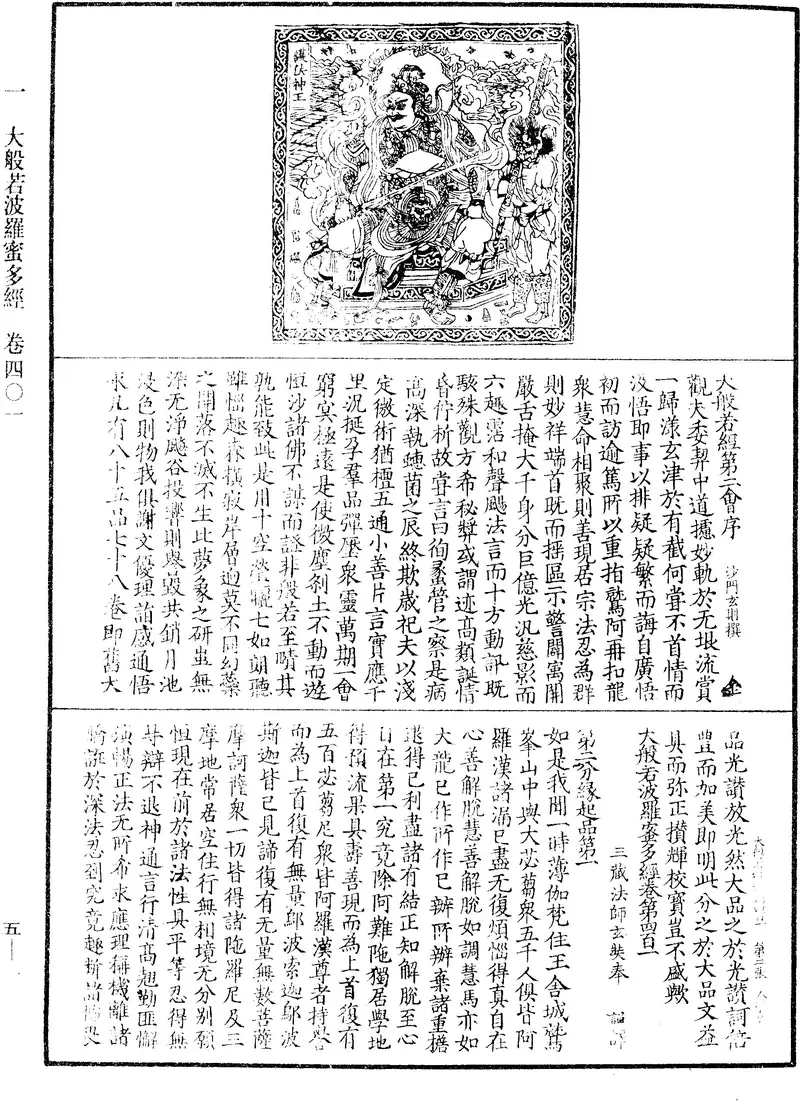 護法神王
大般若經第二會序　沙門玄則撰
觀夫委契中道攄妙軌於无垠流賞
一歸漾玄津於有截何甞不首情而
汲悟即事以排疑疑繁而誨自廣悟
初而訪逾篤所以重指鷲阿冊扣龍
衆慧命相聚則善現居宗法忍為群
則妙祥端首既而搖區示警闢㝢開
嚴舌掩大千身分巨億光汎慈影而
六趣霑和聲颺法言而十方動訊既
駭殊觀方希秘弉或謂迹高類誕情
昏忤析故甞言曰徇蝥管之察是病
高深執蟪菌之辰終欺歲祀夫以淺
定微術猶檀五通小善片言實應千
里況挺孕羣品彈壓衆靈萬期一會
窮冥極遠是使微塵刹土不動而遊
恒沙諸佛不謀而證非般若至賾其
孰能致此是用十空瑩曬七如朗聽
雖惱趣森撗寂岸層迴莫不同幻蘂
之開落不滅不生比夢象之研蚩無
染无淨飈谷投響則與毀共銷月池
浸色則物我俱謝文優理詣感通悟
永凡有八十五品七十八卷即舊大
品光讃放光然大品之於光讃詞倍
豊而加美即明此分之於大品文益
具而弥正攅輝校寶豈不盛歟
大般若波羅蜜多經卷第四百一
三藏法師玄奘奉　詔譯
第二分緣起品第一
如是我聞一時薄伽梵住王舍城鷲
峯山中與大苾芻衆五千人俱皆阿
羅漢諸漏已盡无復煩惱得真自在
心善解脫慧善解脫如調慧馬亦如
大龍已作所作已辦所辦棄諸重擔
逮得己利盡諸有結正知解脫至心
自在第一究竟除阿難陁獨居學地
得預流果具壽善現而為上首復有
五百苾芻尼衆皆阿羅漢尊者持譽
而為上首復有無量鄔波索迦鄔波
斯迦皆已見諦復有无量無數菩薩
摩訶薩衆一切皆得諸陁羅尼及三
摩地常居空住行無相境无分別願
恒現在前於諸法性具平等忍得無
㝵辯不退神通言行清高翹勤匪懈
演暢正法无所希求應理稱機離諸
矯誑於深法忍到究竟趣斷諸怖畏
一　大般若波羅蜜多經　卷四〇一
五—一